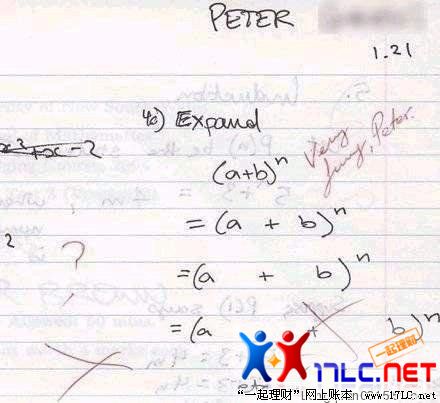 PETER
1.21
4c) Expand
x² + x - 2
(a+b)ⁿ
Very funny, Peter.
= (a + b)ⁿ
2
?
= (a + b)ⁿ
= (a + b)ⁿ
一起理财
17LC.net
“一起理财”网上账本 www.517LC.net